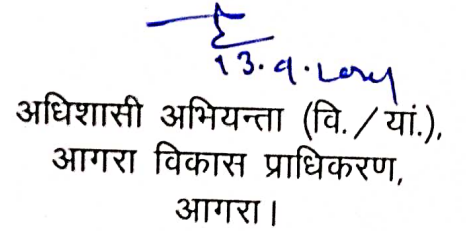 13.9.2024
अधिशासी अभियन्ता (वि./यां.),
आगरा विकास प्राधिकरण,
आगरा।